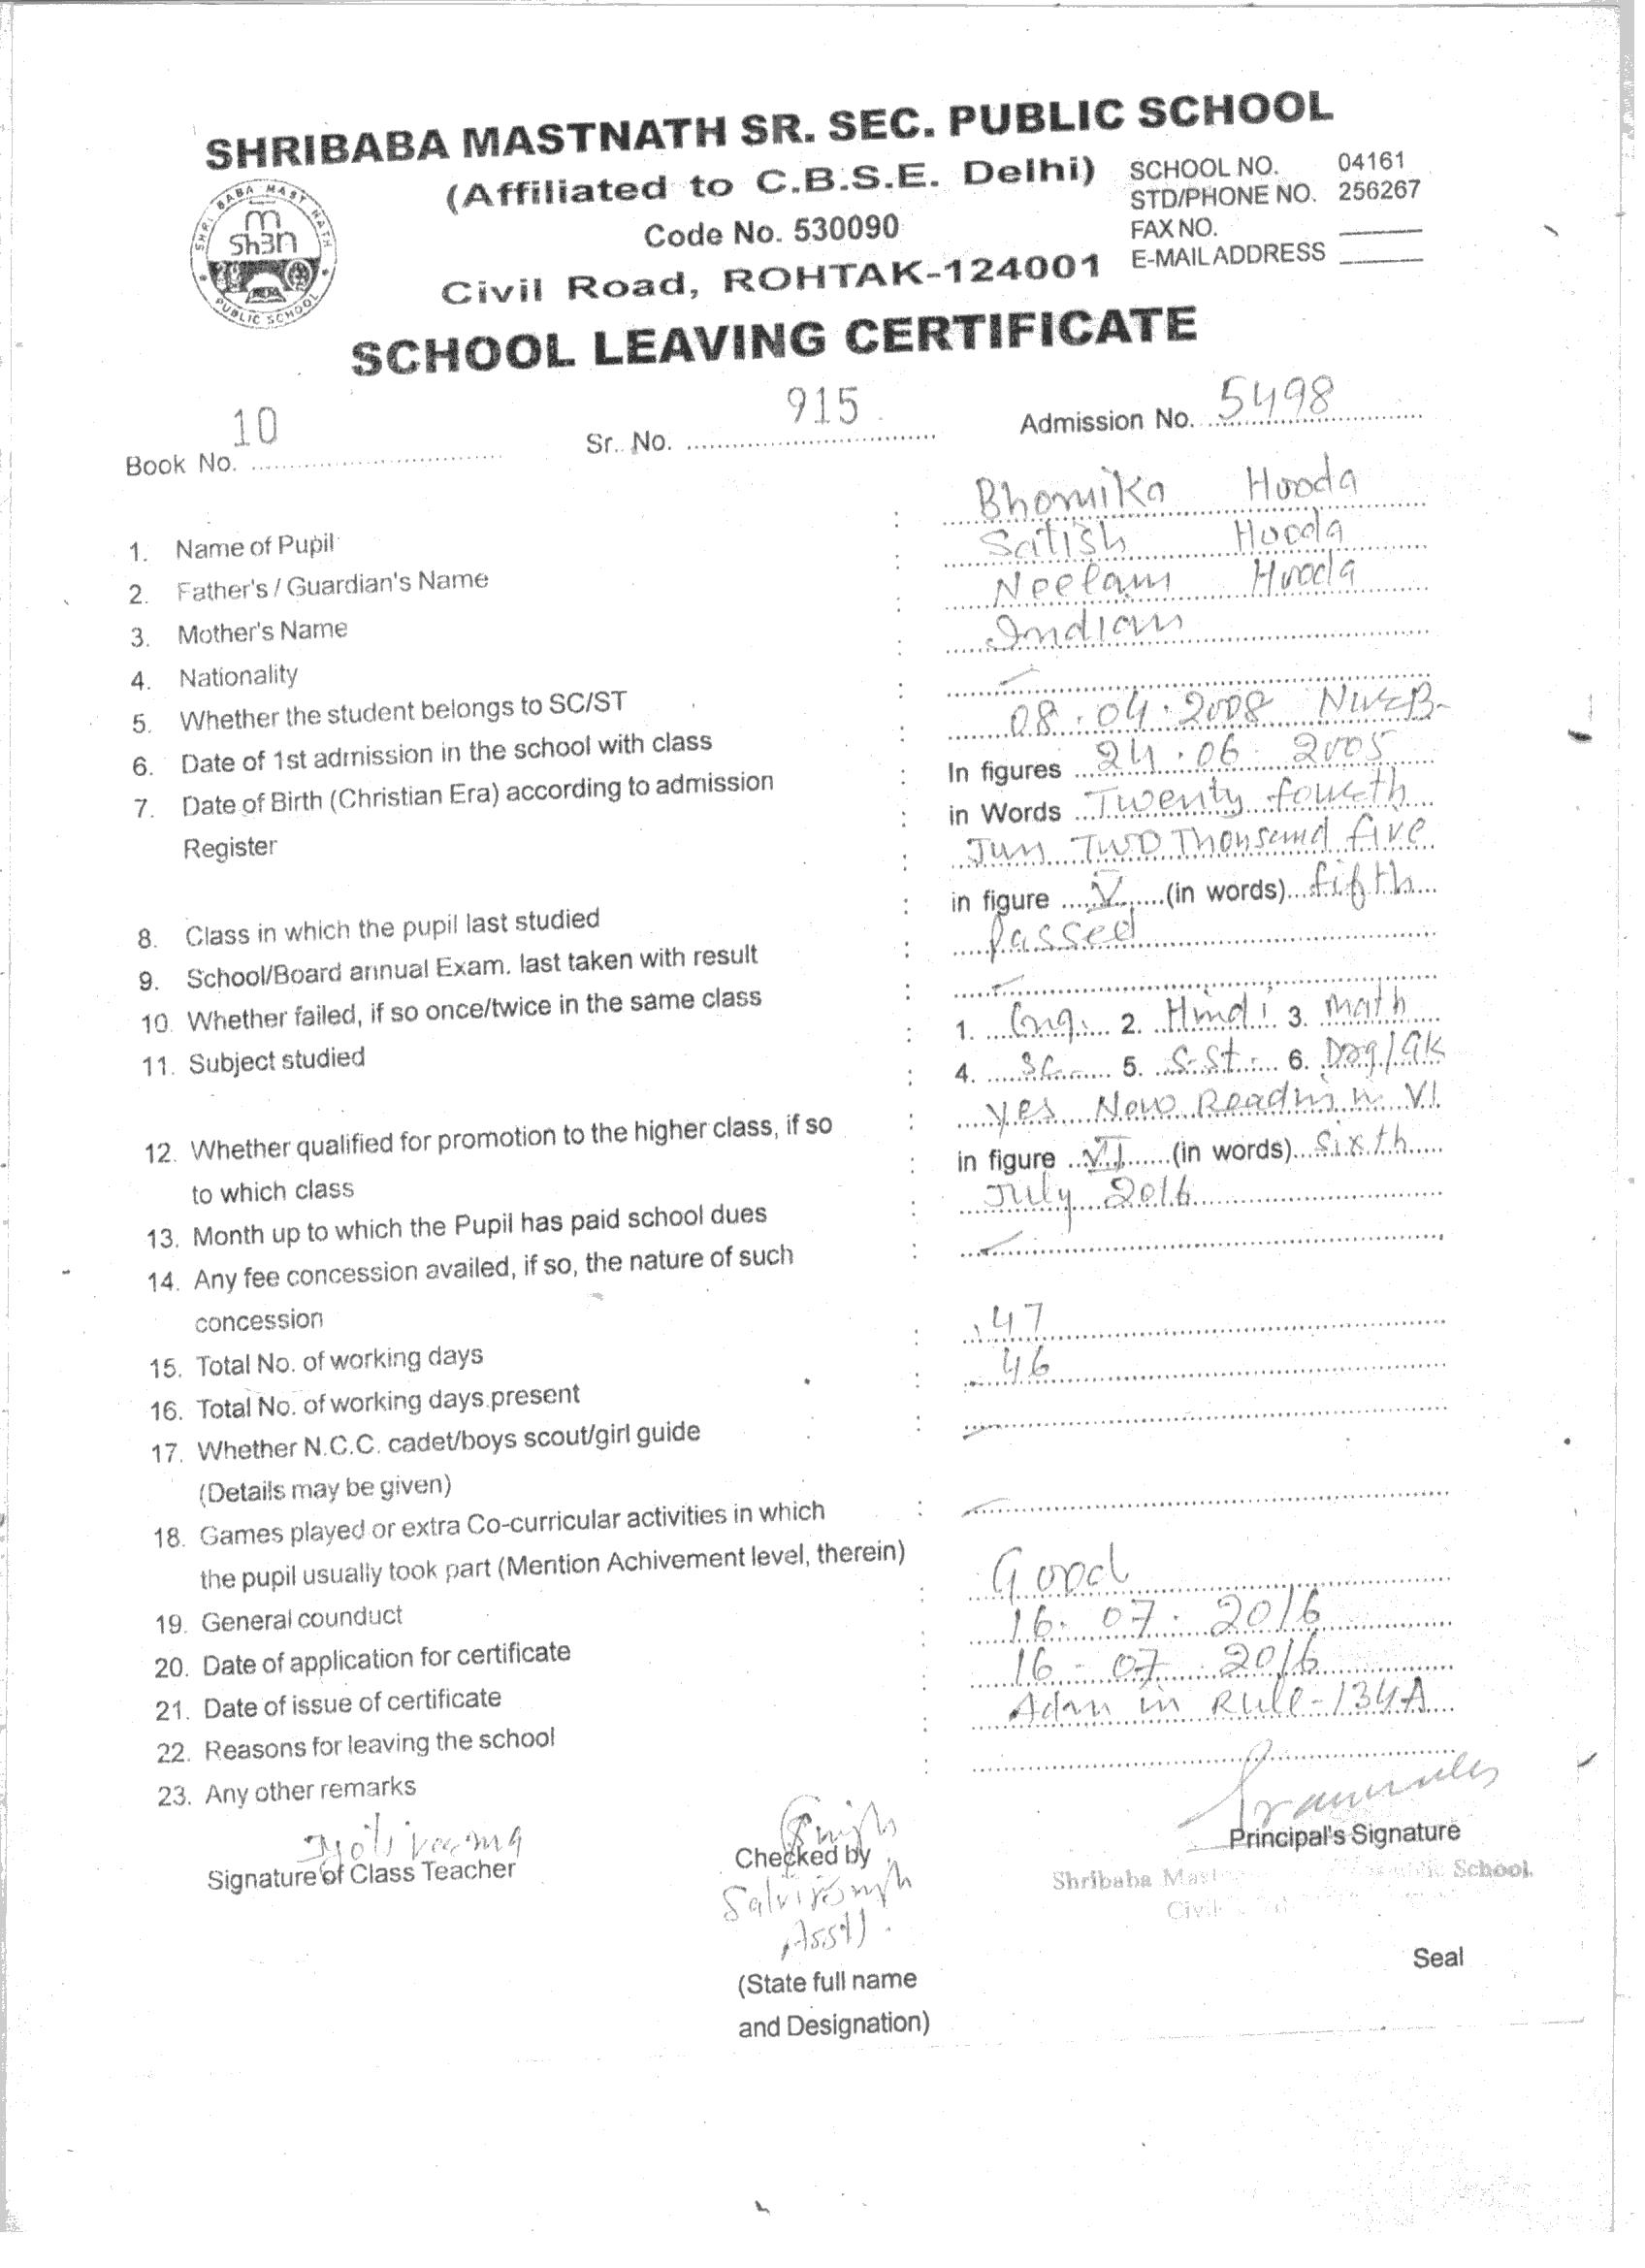 SHRIBABA MASTNATH SR. SEC. PUBLIC SCHOOL
(Affiliated to C.B.S.E. Delhi)
Code No. 530090
Civil Road, ROHTAK-124001
SCHOOL NO. 04161
STD/PHONE NO. 256267
FAX NO.
E-MAIL ADDRESS
SHRI BABA MAST NATH
PUBLIC SCHOOL
SCHOOL LEAVING CERTIFICATE
Book No. 10 Sr. No. 915 Admission No. 5498
1. Name of Pupil : Bhomika Hooda
2. Father's / Guardian's Name : Satish Hooda
3. Mother's Name : Neelam Hooda
4. Nationality : Indian
5. Whether the student belongs to SC/ST : –
6. Date of 1st admission in the school with class : 08.04.2008
7. Date of Birth (Christian Era) according to admission : In figures 24.06.2005
Register : in Words Twenty fourth
Jun Two Thousand five
8. Class in which the pupil last studied : in figure V (in words) fifth
9. School/Board annual Exam. last taken with result : Passed
10. Whether failed, if so once/twice in the same class : –
11. Subject studied : 1. Eng. 2. Hindi 3. Math
4. Sc. 5. S.St. 6. Drg/GK
12. Whether qualified for promotion to the higher class, if so : Yes Now Reading in VI
to which class : in figure VI (in words) Sixth
13. Month up to which the Pupil has paid school dues : July 2016
14. Any fee concession availed, if so, the nature of such : –
concession
15. Total No. of working days : 47
16. Total No. of working days present : 46
17. Whether N.C.C. cadet/boys scout/girl guide : –
(Details may be given)
18. Games played or extra Co-curricular activities in which : –
the pupil usually took part (Mention Achivement level, therein)
19. General counduct : Good
20. Date of application for certificate : 16-07-2016
21. Date of issue of certificate : 16-07-2016
22. Reasons for leaving the school : Adm in Rule-134A
23. Any other remarks :
Signature of Class Teacher
Checked by
Asstt.
(State full name
and Designation)
Principal's Signature
Shribaba School
Civil
Seal